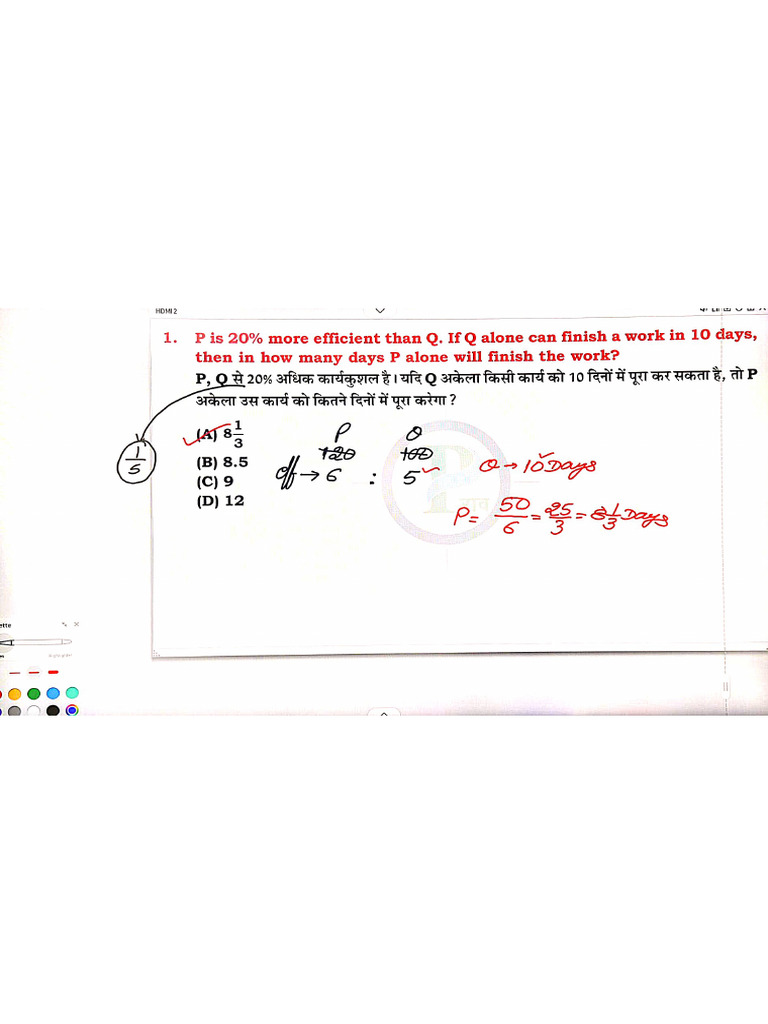 HDMI 2
1. P is 20% more efficient than Q. If Q alone can finish a work in 10 days,
then in how many days P alone will finish the work?
P, Q से 20% अधिक कार्यकुशल है। यदि Q अकेला किसी कार्य को 10 दिनों में पूरा कर सकता है, तो P
अकेला उस कार्य को कितने दिनों में पूरा करेगा ?
(A) 8 1/3
(B) 8.5
(C) 9
(D) 12
1/5
P Q
120 100
eff → 6 : 5
Q → 10 Days
P = 50/6 = 25/3 = 8 1/3 Days